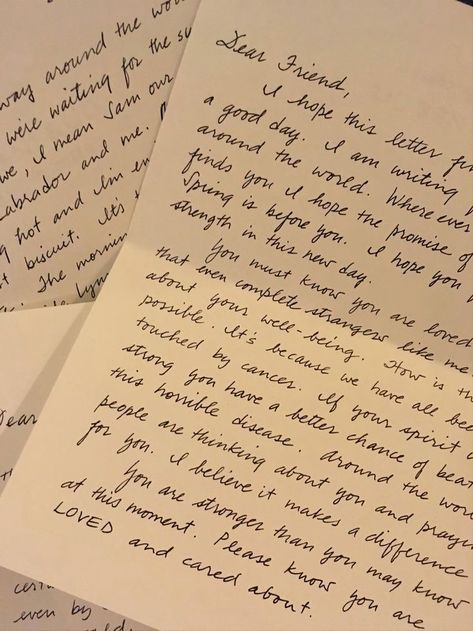 way around the wor
were waiting for the su
we, I mean Sam our
abrador and me.
g hot and I'm en
t biscuit. It's
The mornin
Dear
even by
Dear Friend,
I hope this letter fin
a good day. I am writing
around the world. Where ever
finds you I hope the promise of
Spring is before you. I hope you
strength in this new day.
You must know you are loved
that even complete strangers like me
about your well-being. How is th
possible. It's because we have all bee
touched by cancer. If your spirit
strong you have a better chance of beat
this horrible disease. Around the wor
people are thinking about you and prayin
for you. I believe it makes a difference
You are stronger than you may know
at this moment. Please know you are
LOVED and cared about.